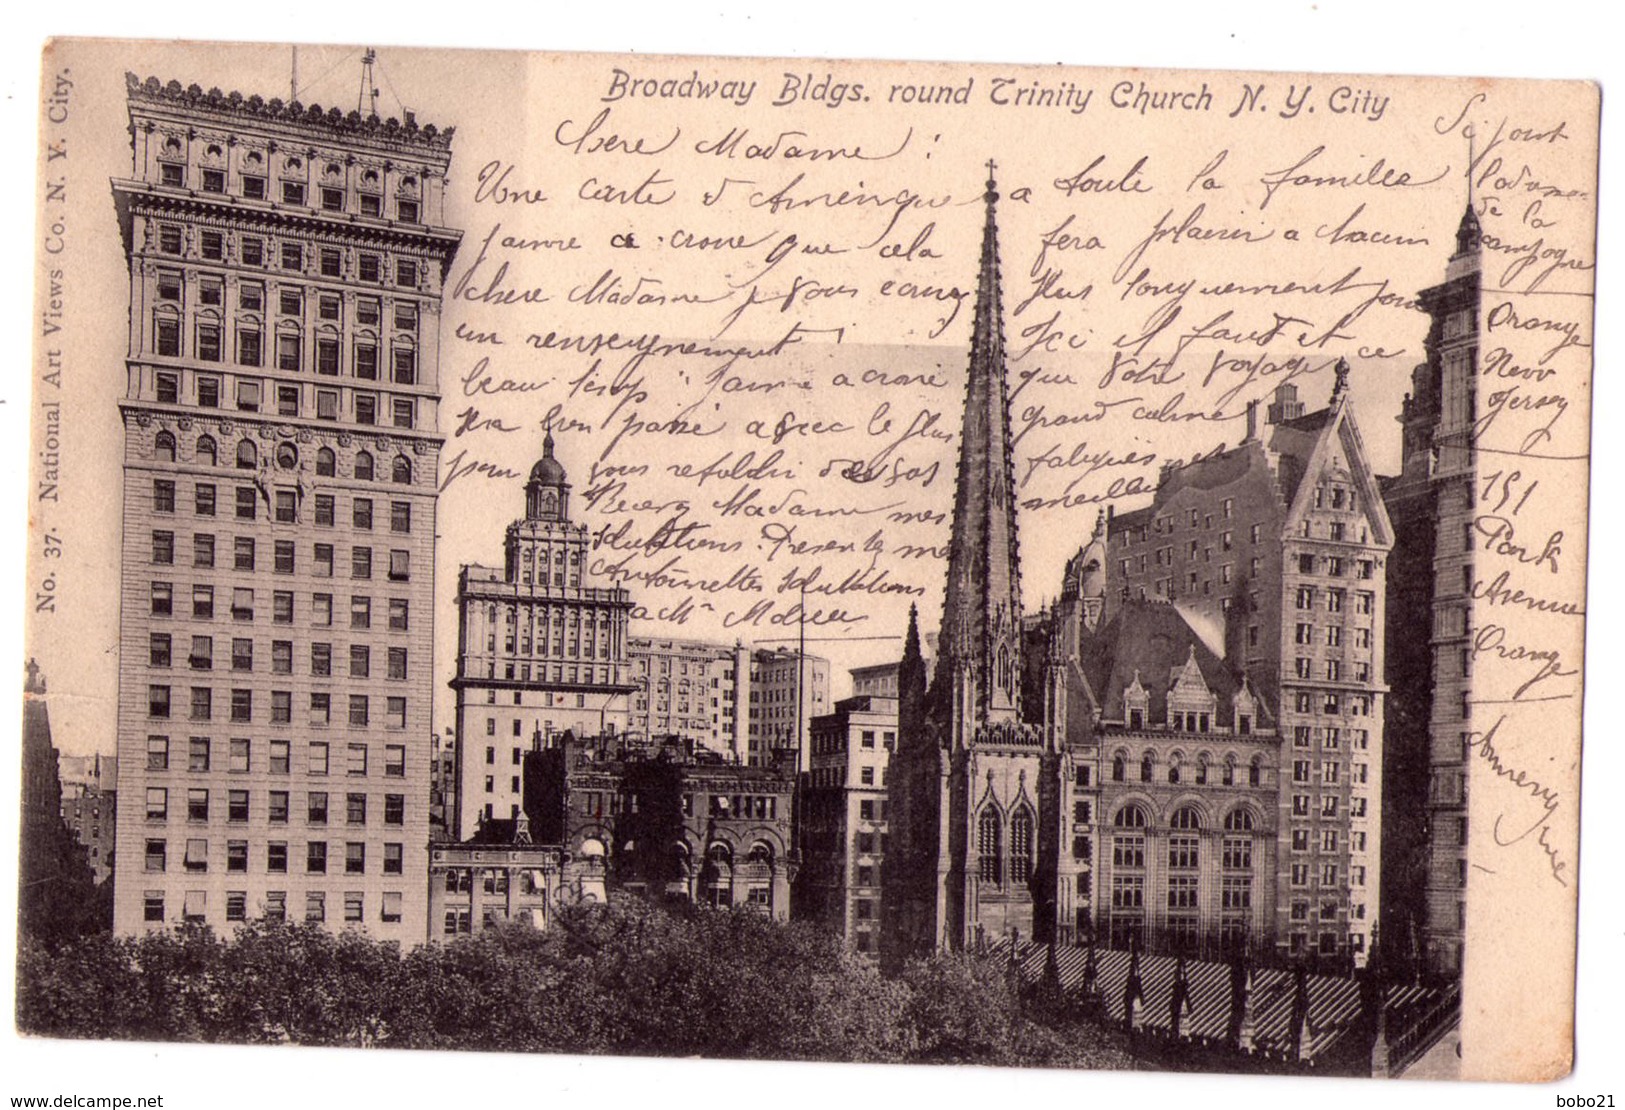 Broadway Bldgs. round Trinity Church N. Y. City
No. 37. National Art Views Co. N. Y. City.
Chere Madame :
Une carte d Amerique a toute la famille
jaime a croire que cela fera plaisir a chacun
chere Madame je vous ecrirez plus longuement pour
un renseignement Ici il faut et ce
beau temps jaime a croire que votre voyage
sera bien passé avec le plus grand calme
pour vous refoldir de vos fatigues et
Recevez Madame mes meilleur
salutations. Presentez mes
salutations
a Mr
Sejour
de la
campagne
Orange
New
Jersey
151
Park
Avenue
Orange
Amerique
delcampe.net
bobo21